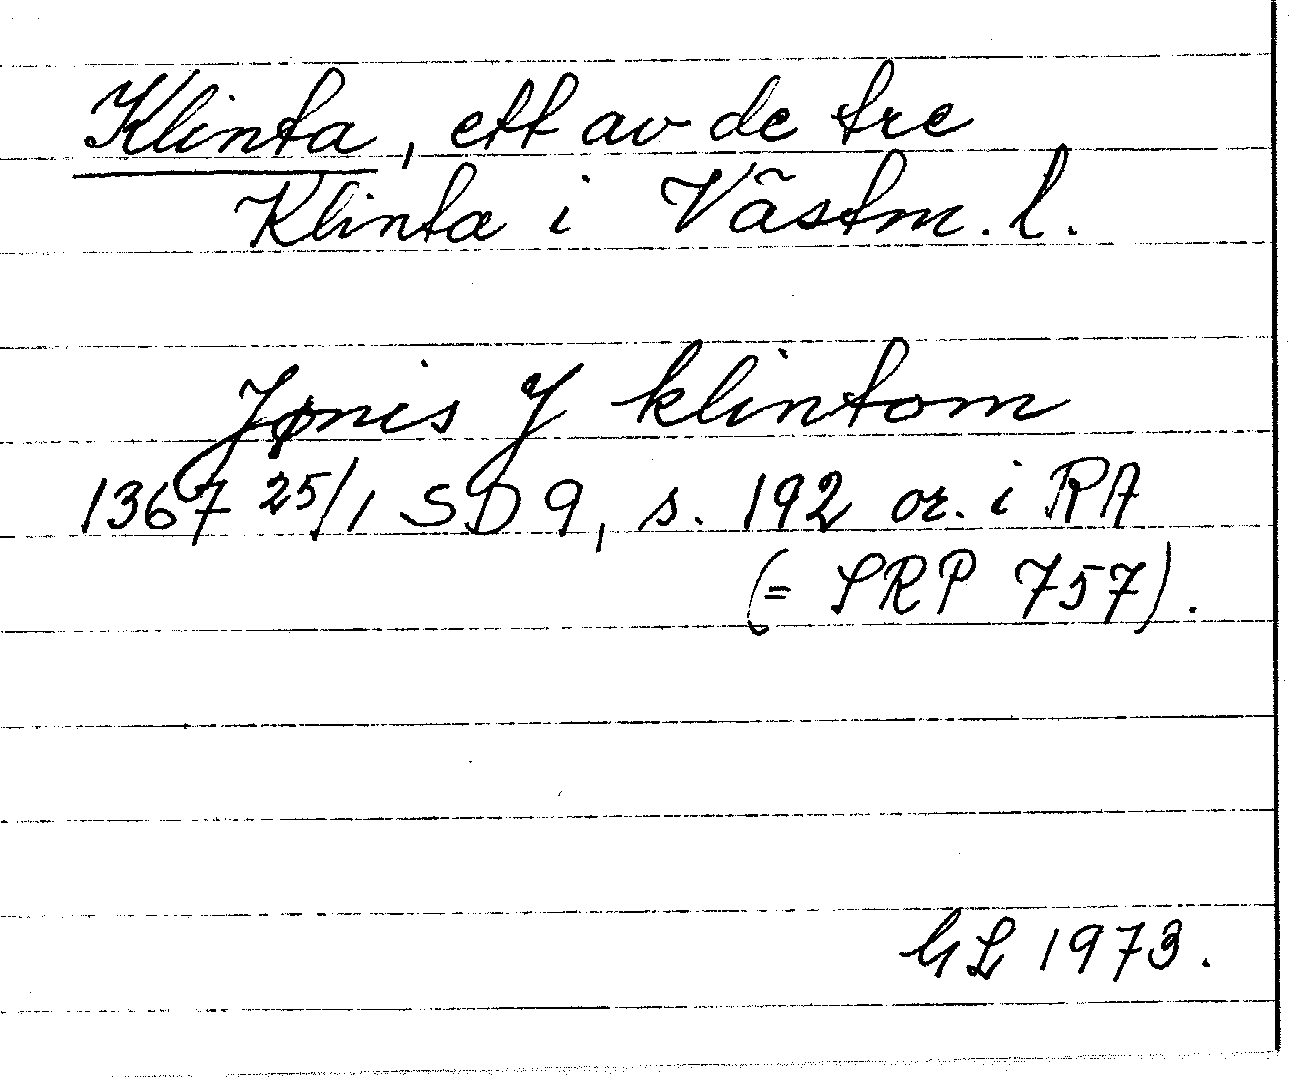 Klinta, ett av de tre
Klinta i Västm. l.
Jønis J klintom
1367 25/1 SD 9, s. 192 or. i RA
(= SRP 757).
GL 1973.